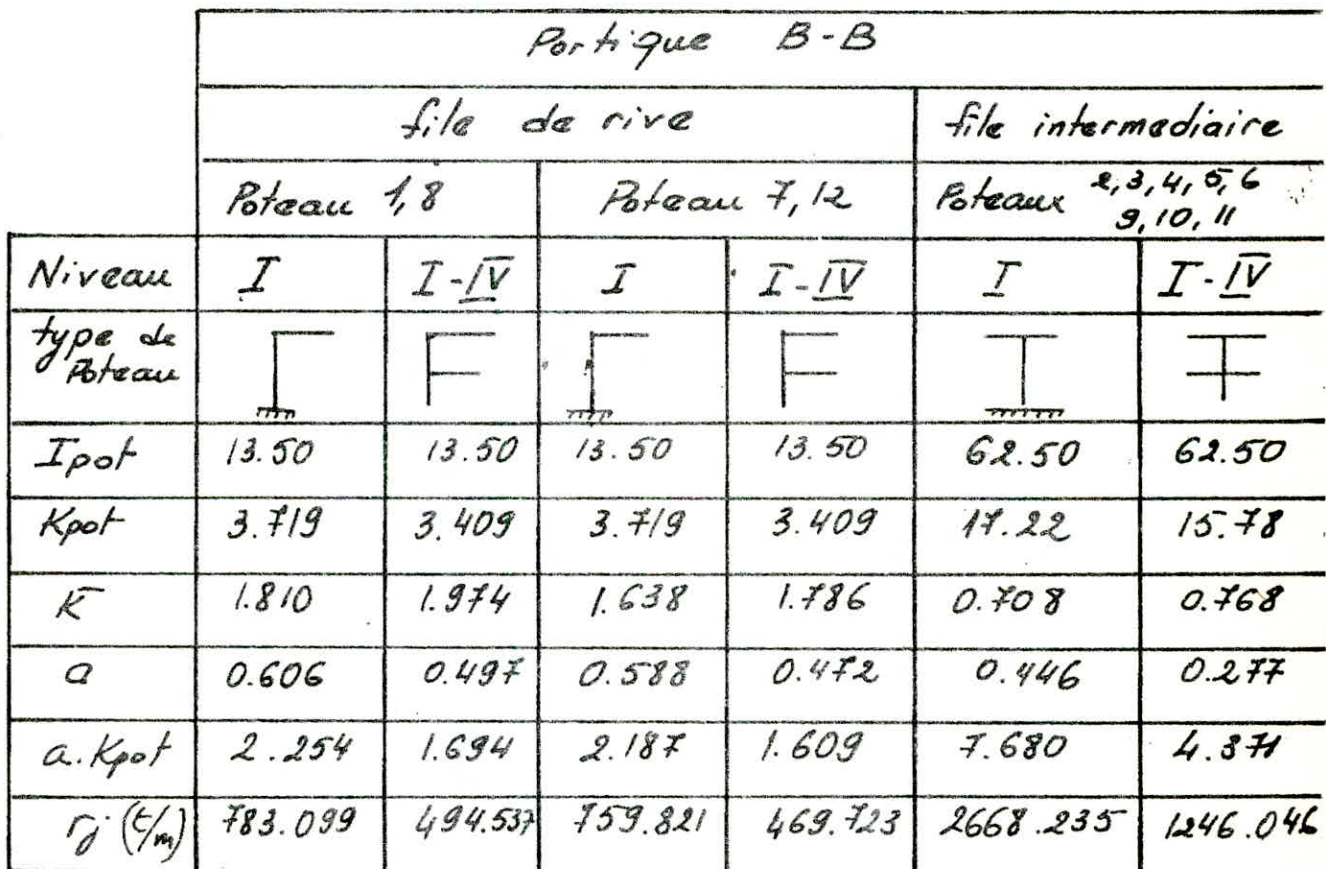 Portique B-B
file de rive file intermediaire
Poteau 1,8 Poteau 7,12 Poteaux 2,3,4,5,6
9,10,11
Niveau I I-IV I I-IV I I-IV
type de
Poteau
Ipot 13.50 13.50 13.50 13.50 62.50 62.50
Kpot 3.719 3.409 3.719 3.409 17.22 15.78
K̅ 1.810 1.974 1.638 1.786 0.708 0.768
a 0.606 0.497 0.588 0.472 0.446 0.277
a.Kpot 2.254 1.694 2.187 1.609 7.680 4.371
rj (t/m) 783.099 494.537 759.821 469.723 2668.235 1246.046